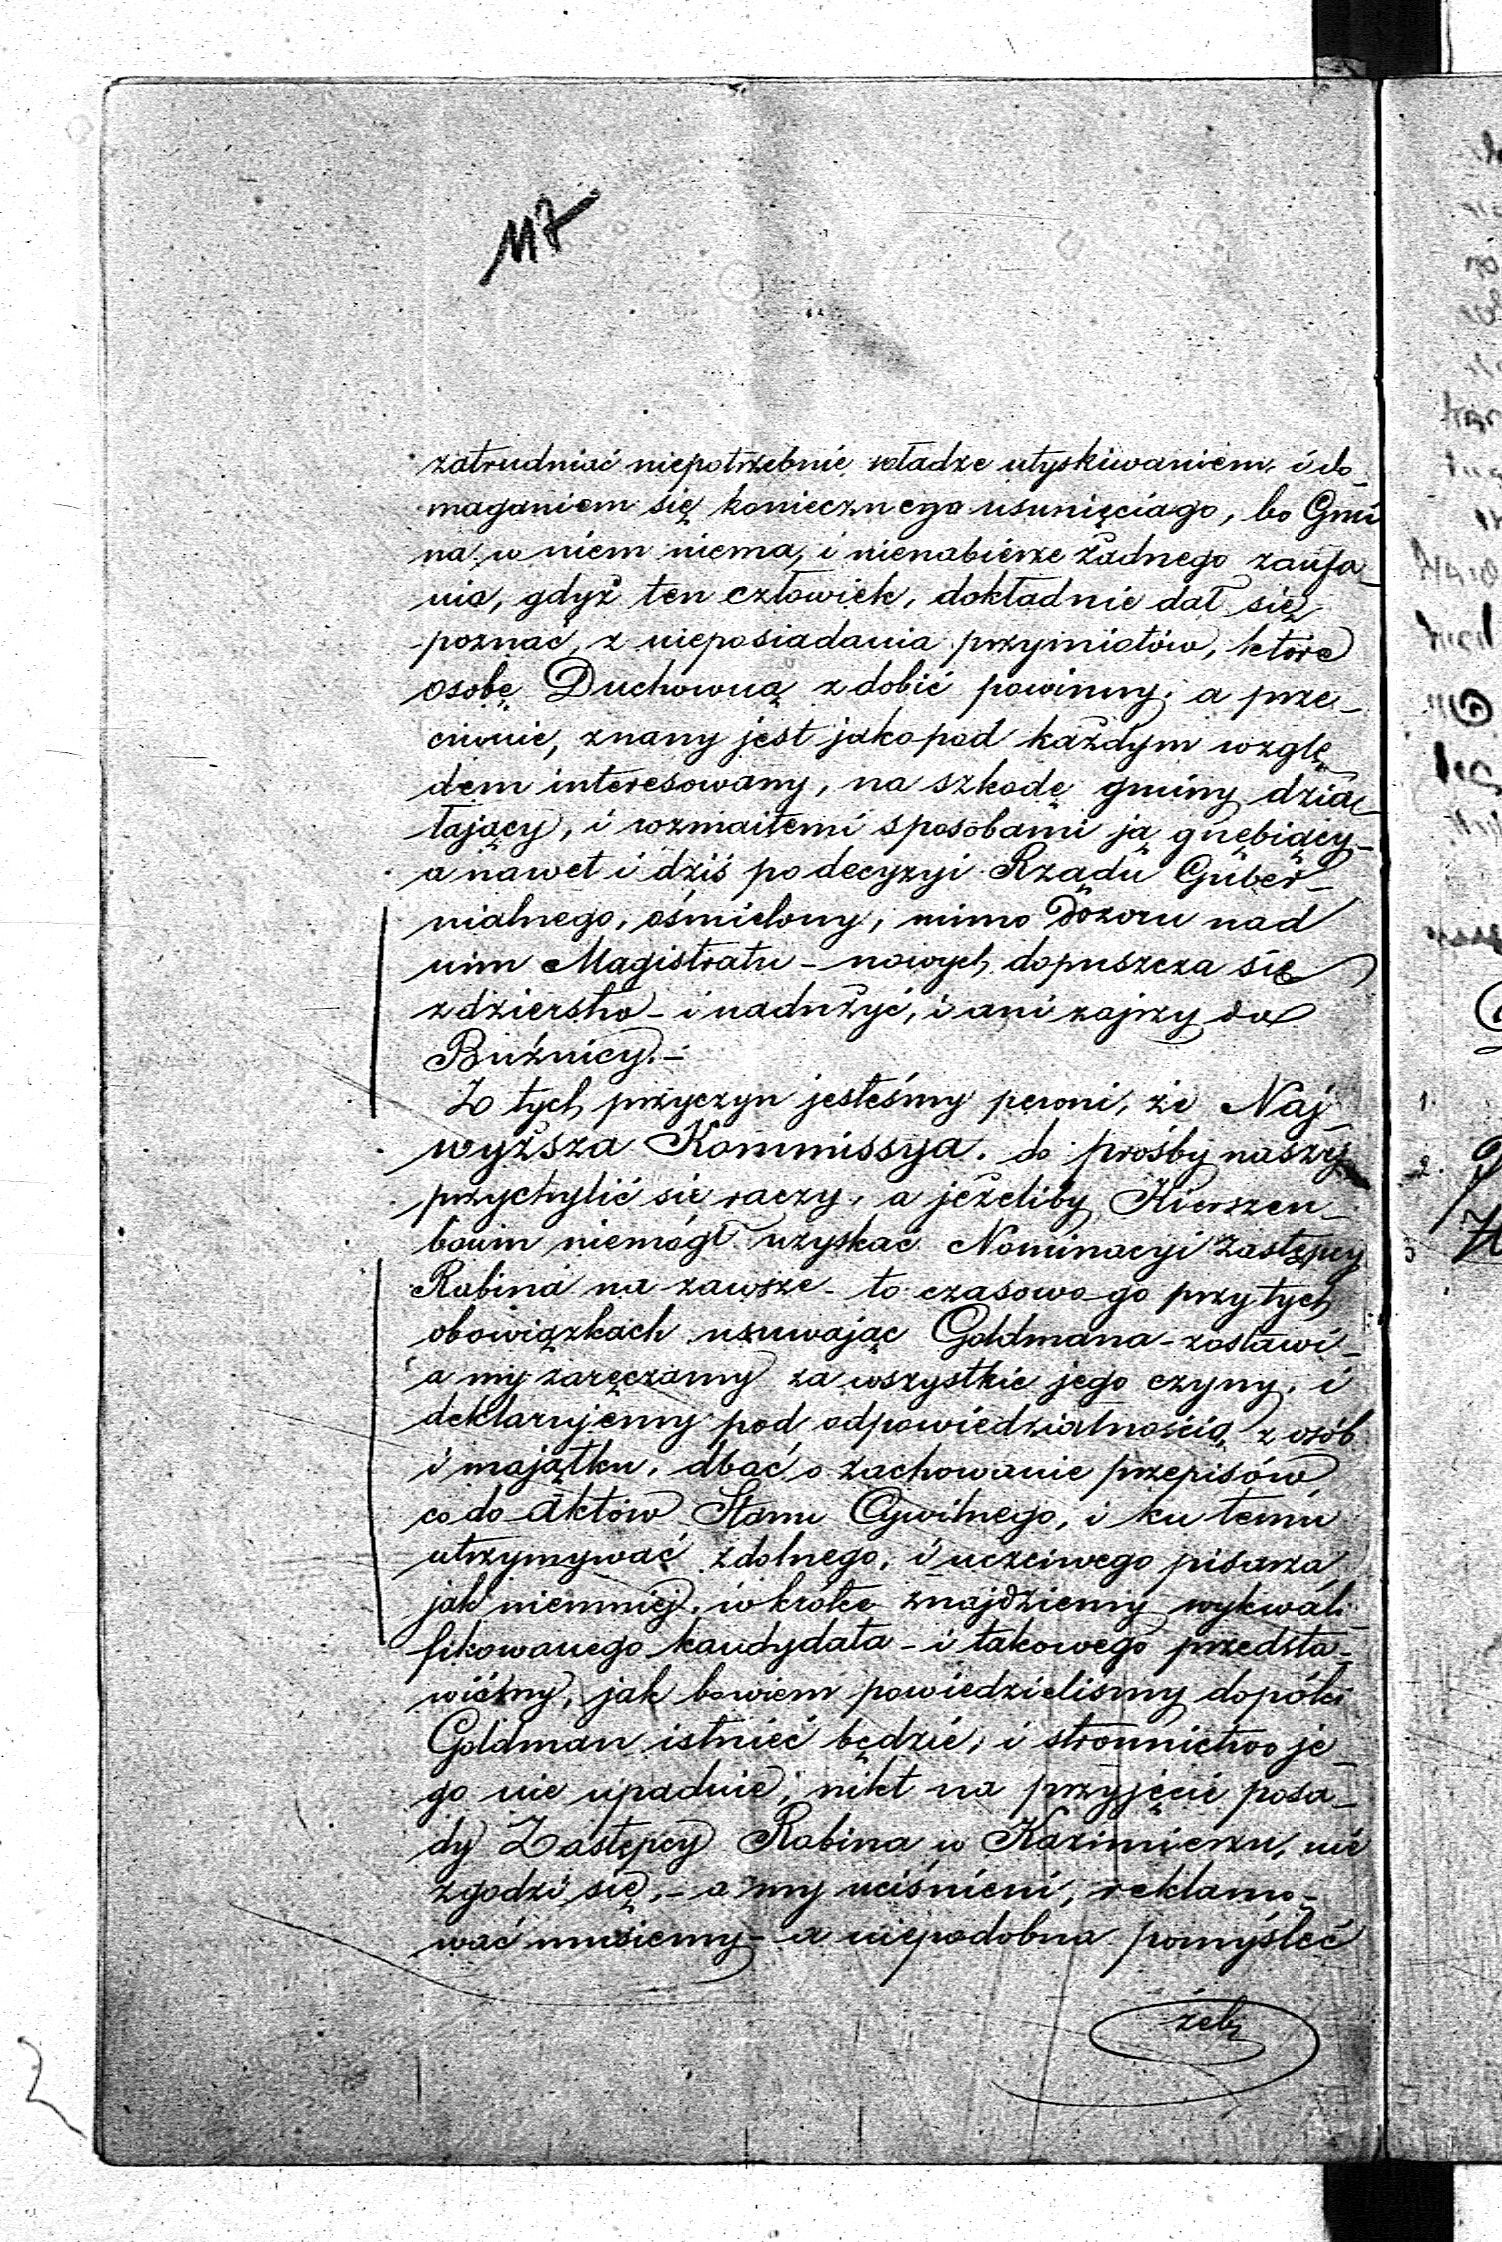 117
zatrudniać niepotrzebnie władze utyskiwaniem i do_
maganiem się koniecznego usunięcia go, bo Gmi
na w niem niema, i nienabierze żadnego zaufa_
nia, gdyż ten człowiek, dokładnie dał się
poznać, z nieposiadania przymiotów, które
osobę Duchowną zdobić powinny, a prze_
ciwnie, znany jest jako pod każdym wzglę_
dem interesowany, na szkodę gminy dzia_
łający, i rozmaitemi sposobami ją gnębiący_
a nawet i dziś po decyzyi Rządu Guber_
nialnego, ośmielony, mimo Dozoru nad
nim Magistratu - nowych dopuszcza się
zdzierstw - i nadużyć, i ani zajrzy do
Bużnicy. -
Z tych przyczyn jesteśmy pewni, że Naj_
wyższa Kommissya do prośby naszej
przychylić się raczy, a jeżeliby Kierszen_
baum niemógł uzyskać Nominacyi Zastępcy
Rabina na zawsze - to czasowo go przy tych
obowiązkach usuwając Goldmana - zostawi -
a my zaręczamy za wszystkie jego czyny, i
deklarujemy pod odpowiedzialnością z osób
i majątku, dbać o zachowanie przepisów
co do Aktów Stanu Cywilnego, i ku temu
utrzymywać zdolnego, i uczciwego pisarza
jak niemniej, wkrótce znajdziemy wykwali_
fikowanego kandydata - i takowego przedsta_
wiemy, jak bowiem powiedzieliśmy dopóki
Goldman istnieć będzie, i stronnictwo je_
go nie upadnie, nikt na przyjęcie posa_
dy Zastępcy Rabina w Kazimierzu, nie
zgodzi się, - a my uciśnieni, reklamo_
wać musiemy - a niepodobna pomyśleć
żeby
1.
2.
3